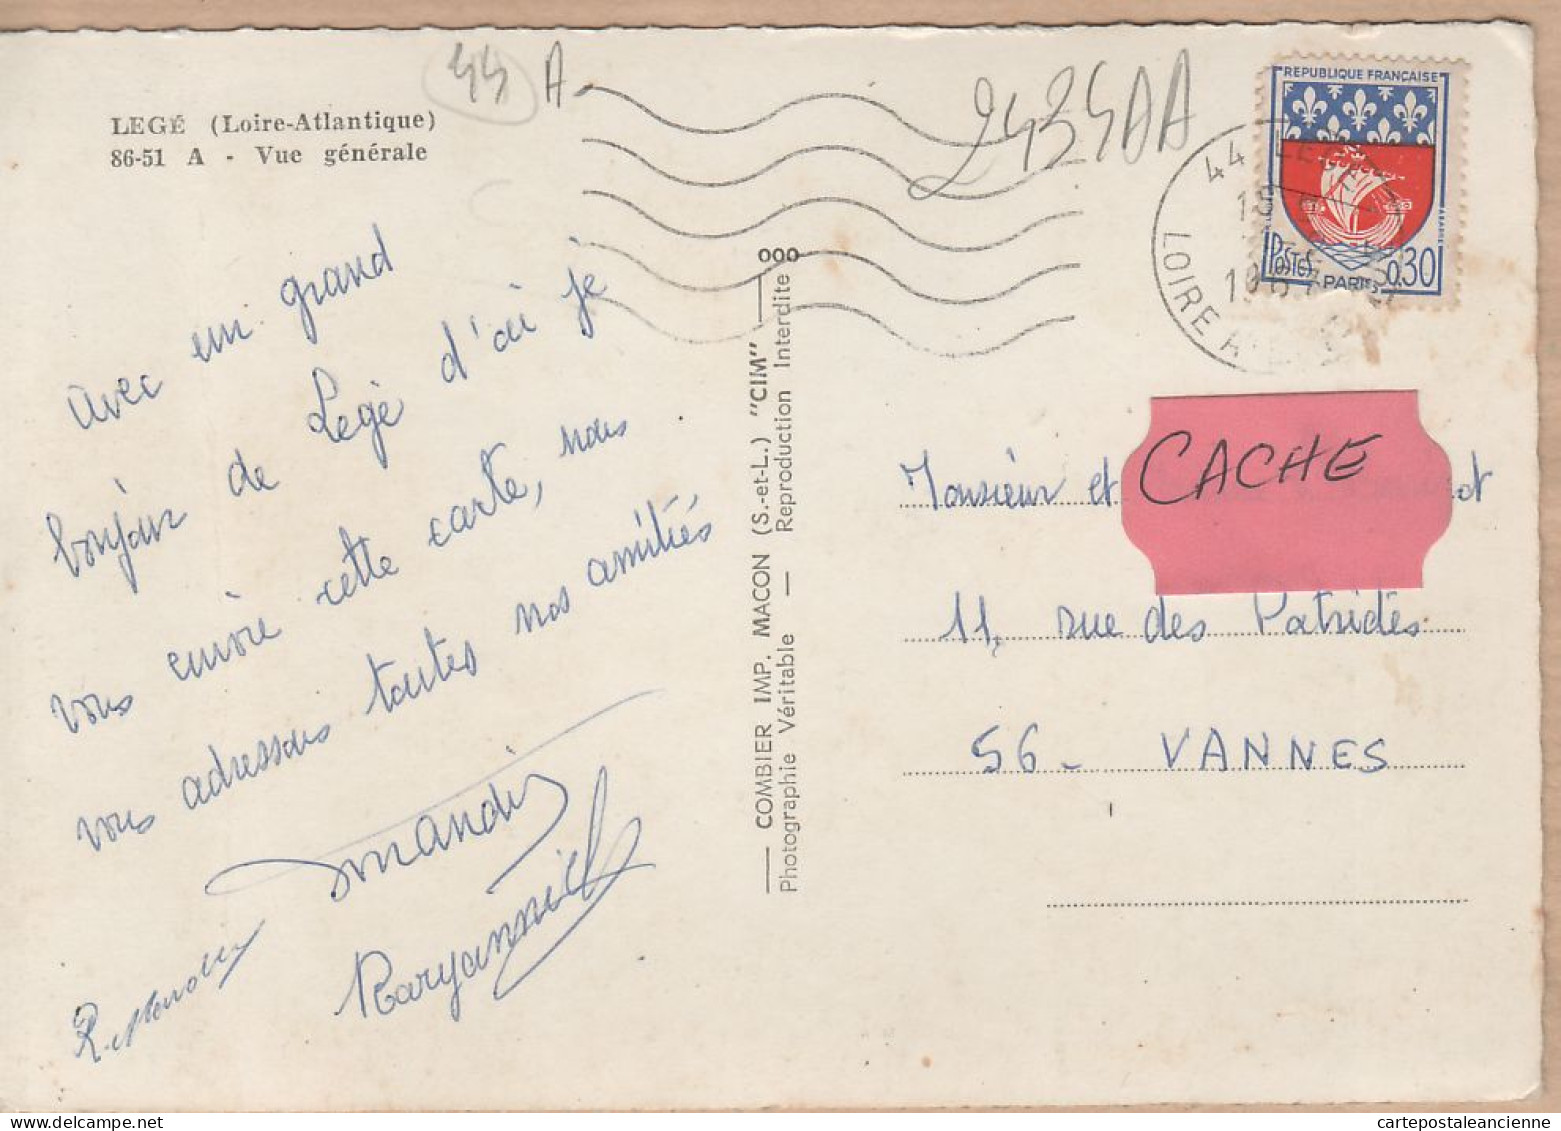 44 A
2434AA
LEGÉ (Loire-Atlantique)
86-51 A - Vue générale
avec un grand
bonjour de Legé d'où je
vous envoie cette carte, nous
vous adressons toutes nos amitiés
Maryannick
COMBIER IMP. MACON (S.-et-L.) "CIM"
Photographie Véritable — Reproduction Interdite
REPUBLIQUE FRANÇAISE
POSTES 0.30
PARIS
44
LOIRE A
Monsieur et CACHE ot
11, rue des Patriotes
56 - VANNES
cartepostaleancienne